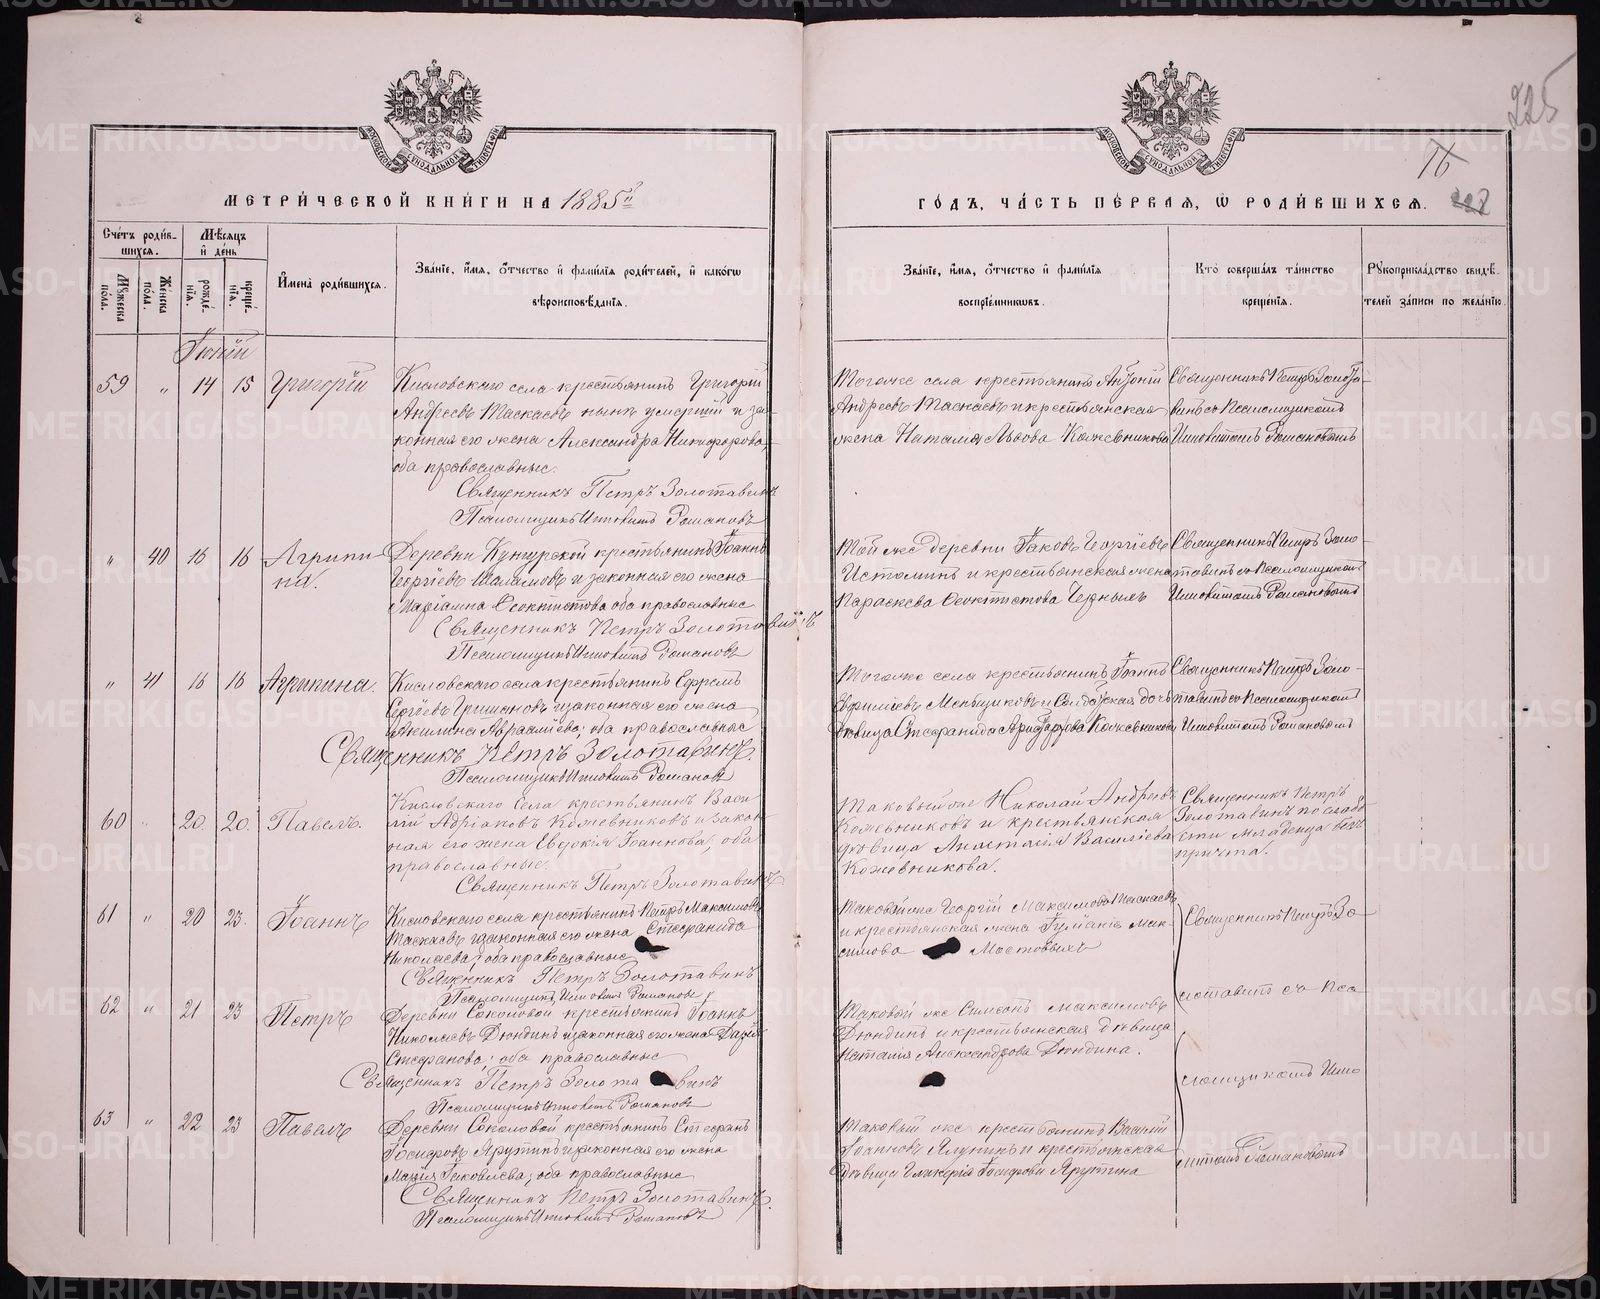 225
16
228
МЕТРИЧЕСКОЙ КНИГИ НА 1885й
ГОДЪ, ЧАСТЬ ПЕРВАЯ, Ѿ РОДИВШИХСЯ.
МОСКОВСКОЙ СѴНОДАЛЬНОЙ ТИПОГРАФІИ
Счетъ родившихся.
Мужеска пола.
Женска пола.
Мѣсяцъ и день
рожденія.
крещенія.
Имена родившихся.
Званіе, имя, отчество и фамилія родителей, и какогѡ
вѣроисповѣданія.
Званіе, имя, отчество и фамилія
воспріемниковъ.
Кто совершалъ таинство
крещенія.
Рукоприкладство свидѣ-
телей записи по желанію.
Іюнь
59 " 14 15 Григорій
Кисловскаго села крестьянинъ Григорій
Андреевъ Таскаевъ нынѣ умершій и за-
конная его жена Александра Никифорова,
оба православные.
Священникъ Петръ Золотавинъ
Псаломщикъ Ипполитъ Романовъ
Тогоже села крестьянинъ Антоній
Андреевъ Таскаевъ и крестьянская
жена Наталія Львова Кожевникова
Священникъ Петръ Золота-
винъ съ Псаломщикомъ
Ипполитомъ Романовымъ
" 40 16 16 Агрипи-
на.
Деревни Кунгурской крестьянинъ Іоаннъ
Георгіевъ Шаламовъ и законная его жена
Маріамна Ѳеоктистова оба православные
Священникъ Петръ Золотавинъ
Псаломщикъ Ипполитъ Романовъ
Той же деревни Іаковъ Георгіевъ
Истоминъ и крестьянская жена
Параскева Ѳеоктистова Черныхъ
Священникъ Петръ Золо-
тавинъ съ Псаломщикомъ
Ипполитомъ Романовымъ
" 41 16 16 Агрипина.
Кисловскаго села крестьянинъ Ефремъ
Сергіевъ Гришановъ и законная его жена
Акилина Авраамиева; оба православные
Священникъ Петръ Золотавинъ.
Псаломщикъ Ипполитъ Романовъ
Тогоже села крестьянинъ Іоаннъ
Меньщиковъ и Солдатская дочь
дѣвица Стефанида Кожевникова
Священникъ Петръ Золо-
тавинъ съ Псаломщикомъ
Ипполитомъ Романовымъ
60 " 20. 20. Павелъ.
Кисловскаго села крестьянинъ Васи-
лій Адріановъ Кожевниковъ и закон-
ная его жена Евдокія Іоаннова, оба
православные.
Священникъ Петръ Золотавинъ
Таковый же Николай Андреевъ
Кожевниковъ и крестьянская
дѣвица Анастасія Васильева
Кожевникова.
Священникъ Петръ
Золотавинъ по слабо-
сти младенца безъ
причта.
61 " 20 23. Іоаннъ
Кисловскаго села крестьянинъ Петръ Максимовъ
Таскаевъ и законная его жена Стефанида
Николаева; оба православные
Священникъ Петръ Золотавинъ
Псаломщикъ Ипполитъ Романовъ
Таковой же Георгій Максимовъ Таскаевъ
и крестьянская жена Іуліанія Мак-
симова Мостовыхъ
Священникъ Петръ Зо-
62 " 21 23 Петръ
Деревни Соколовой крестьянинъ Іоаннъ
Николаевъ Дюндинъ и законная его жена Дарія
Стефанова; оба православные
Священникъ Петръ Золотавинъ
Псаломщикъ Ипполитъ Романовъ
Таковой же Симеонъ Максимовъ
Дюндинъ и крестьянская дѣвица
Наталія Александрова Дюндина.
лотавинъ съ Пса-
ломщикомъ Иппо-
63 " 22 23 Павелъ
Деревни Соколовой крестьянинъ Стефанъ
Іосифовъ Ярутинъ и законная его жена
Марія Іаковлева; оба православные
Священникъ Петръ Золотавинъ.
Псаломщикъ Ипполитъ Романовъ
Таковый же крестьянинъ Василій
Іоанновъ и крестьянская
дѣвица Гликерія Іосифова Ярутина
литомъ Романовымъ
METRIKI.GASO-URAL.RU